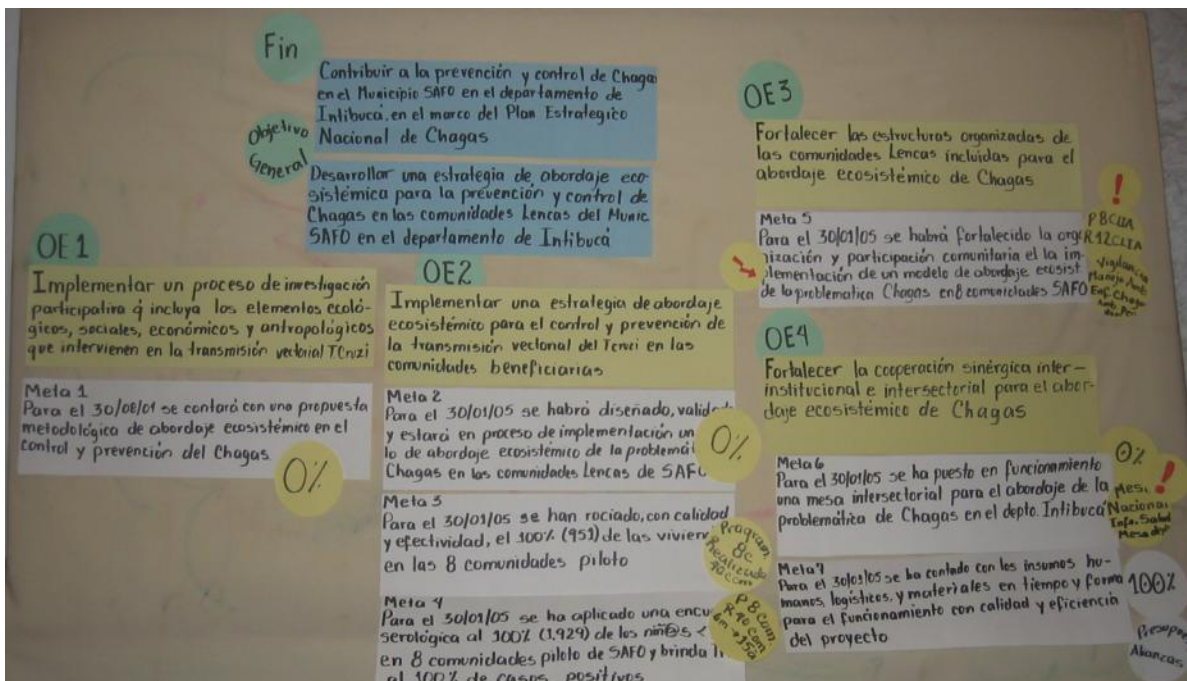 Fin
Contribuir a la prevención y control de Chaga
en el Municipio SAFO en el departamento de
Intibucá, en el marco del Plan Estrategico
Nacional de Chagas
Objetivo
General
Desarrollar una estrategia de abordaje eco-
sistémica para la prevención y control de
Chagas en las comunidades Lencas del Munic
SAFO en el departamento de Intibucá
OE1
Implementar un proceso de investigación
participativa q̄ incluya los elementos ecoló-
gicos, sociales, económicos y antropológicos
que intervienen en la transmisión vectorial TCruzi
Meta 1
Para el 30/08/01 se contará con una propuesta
metodológica de abordaje ecosistémico en el
control y prevención del Chagas
0%
OE2
Implementar una estrategia de abordaje
ecosistémico para el control y prevención de
la transmisión vectorial del Tcruzi en las
comunidades beneficiarias
Meta 2
Para el 30/01/05 se habrá diseñado, valid
y estará en proceso de implementación un
lo de abordaje ecosistémico de la problemá
Chagas en las comunidades Lencas de SAFO
0%
Meta 3
Para el 30/01/05 se han rociado, con calidad
y efectividad, el 100% (951) de las vivien
en las 8 comunidades piloto
Program.
8c
Realizado
40com
Meta 4
Para el 30/01/05 se ha aplicado una encu
serológica al 100% (1,929) de los niñ@s <
en 8 comunidades piloto de SAFO y brinda
al 100% de casos positivos
P8 com.
R 40 com
6m → 15a
OE3
Fortalecer las estructuras organizadas de
las comunidades Lencas incluidas para el
abordaje ecosistémico de Chagas
!
Meta 5
Para el 30/01/05 se habrá fortalecido la orga
nización y participación comunitaria el la im-
plementación de un modelo de abordaje ecosist.
de la problematica Chagas en 8 comunidades SAFO
P8CLIA
R12CLIA
Vigilancia
Manejo Amb
Enf. Chagas
OE4
Fortalecer la cooperación sinérgica inter-
institucional e intersectorial para el abor-
daje ecosistémico de Chagas
Meta 6
Para el 30/01/05 se ha puesto en funcionamiento
una mesa intersectorial para el abordaje de la
problemática de Chagas en el depto. Intibucá
0%
!
Mesa
Nacional
Info. Salud
Mesa depto
Meta 7
Para el 30/01/05 se ha contado con los insumos hu-
manos, logísticos, y materiales en tiempo y forma
para el funcionamiento con calidad y eficiencia
del proyecto
100%
Presupue
Alianzas